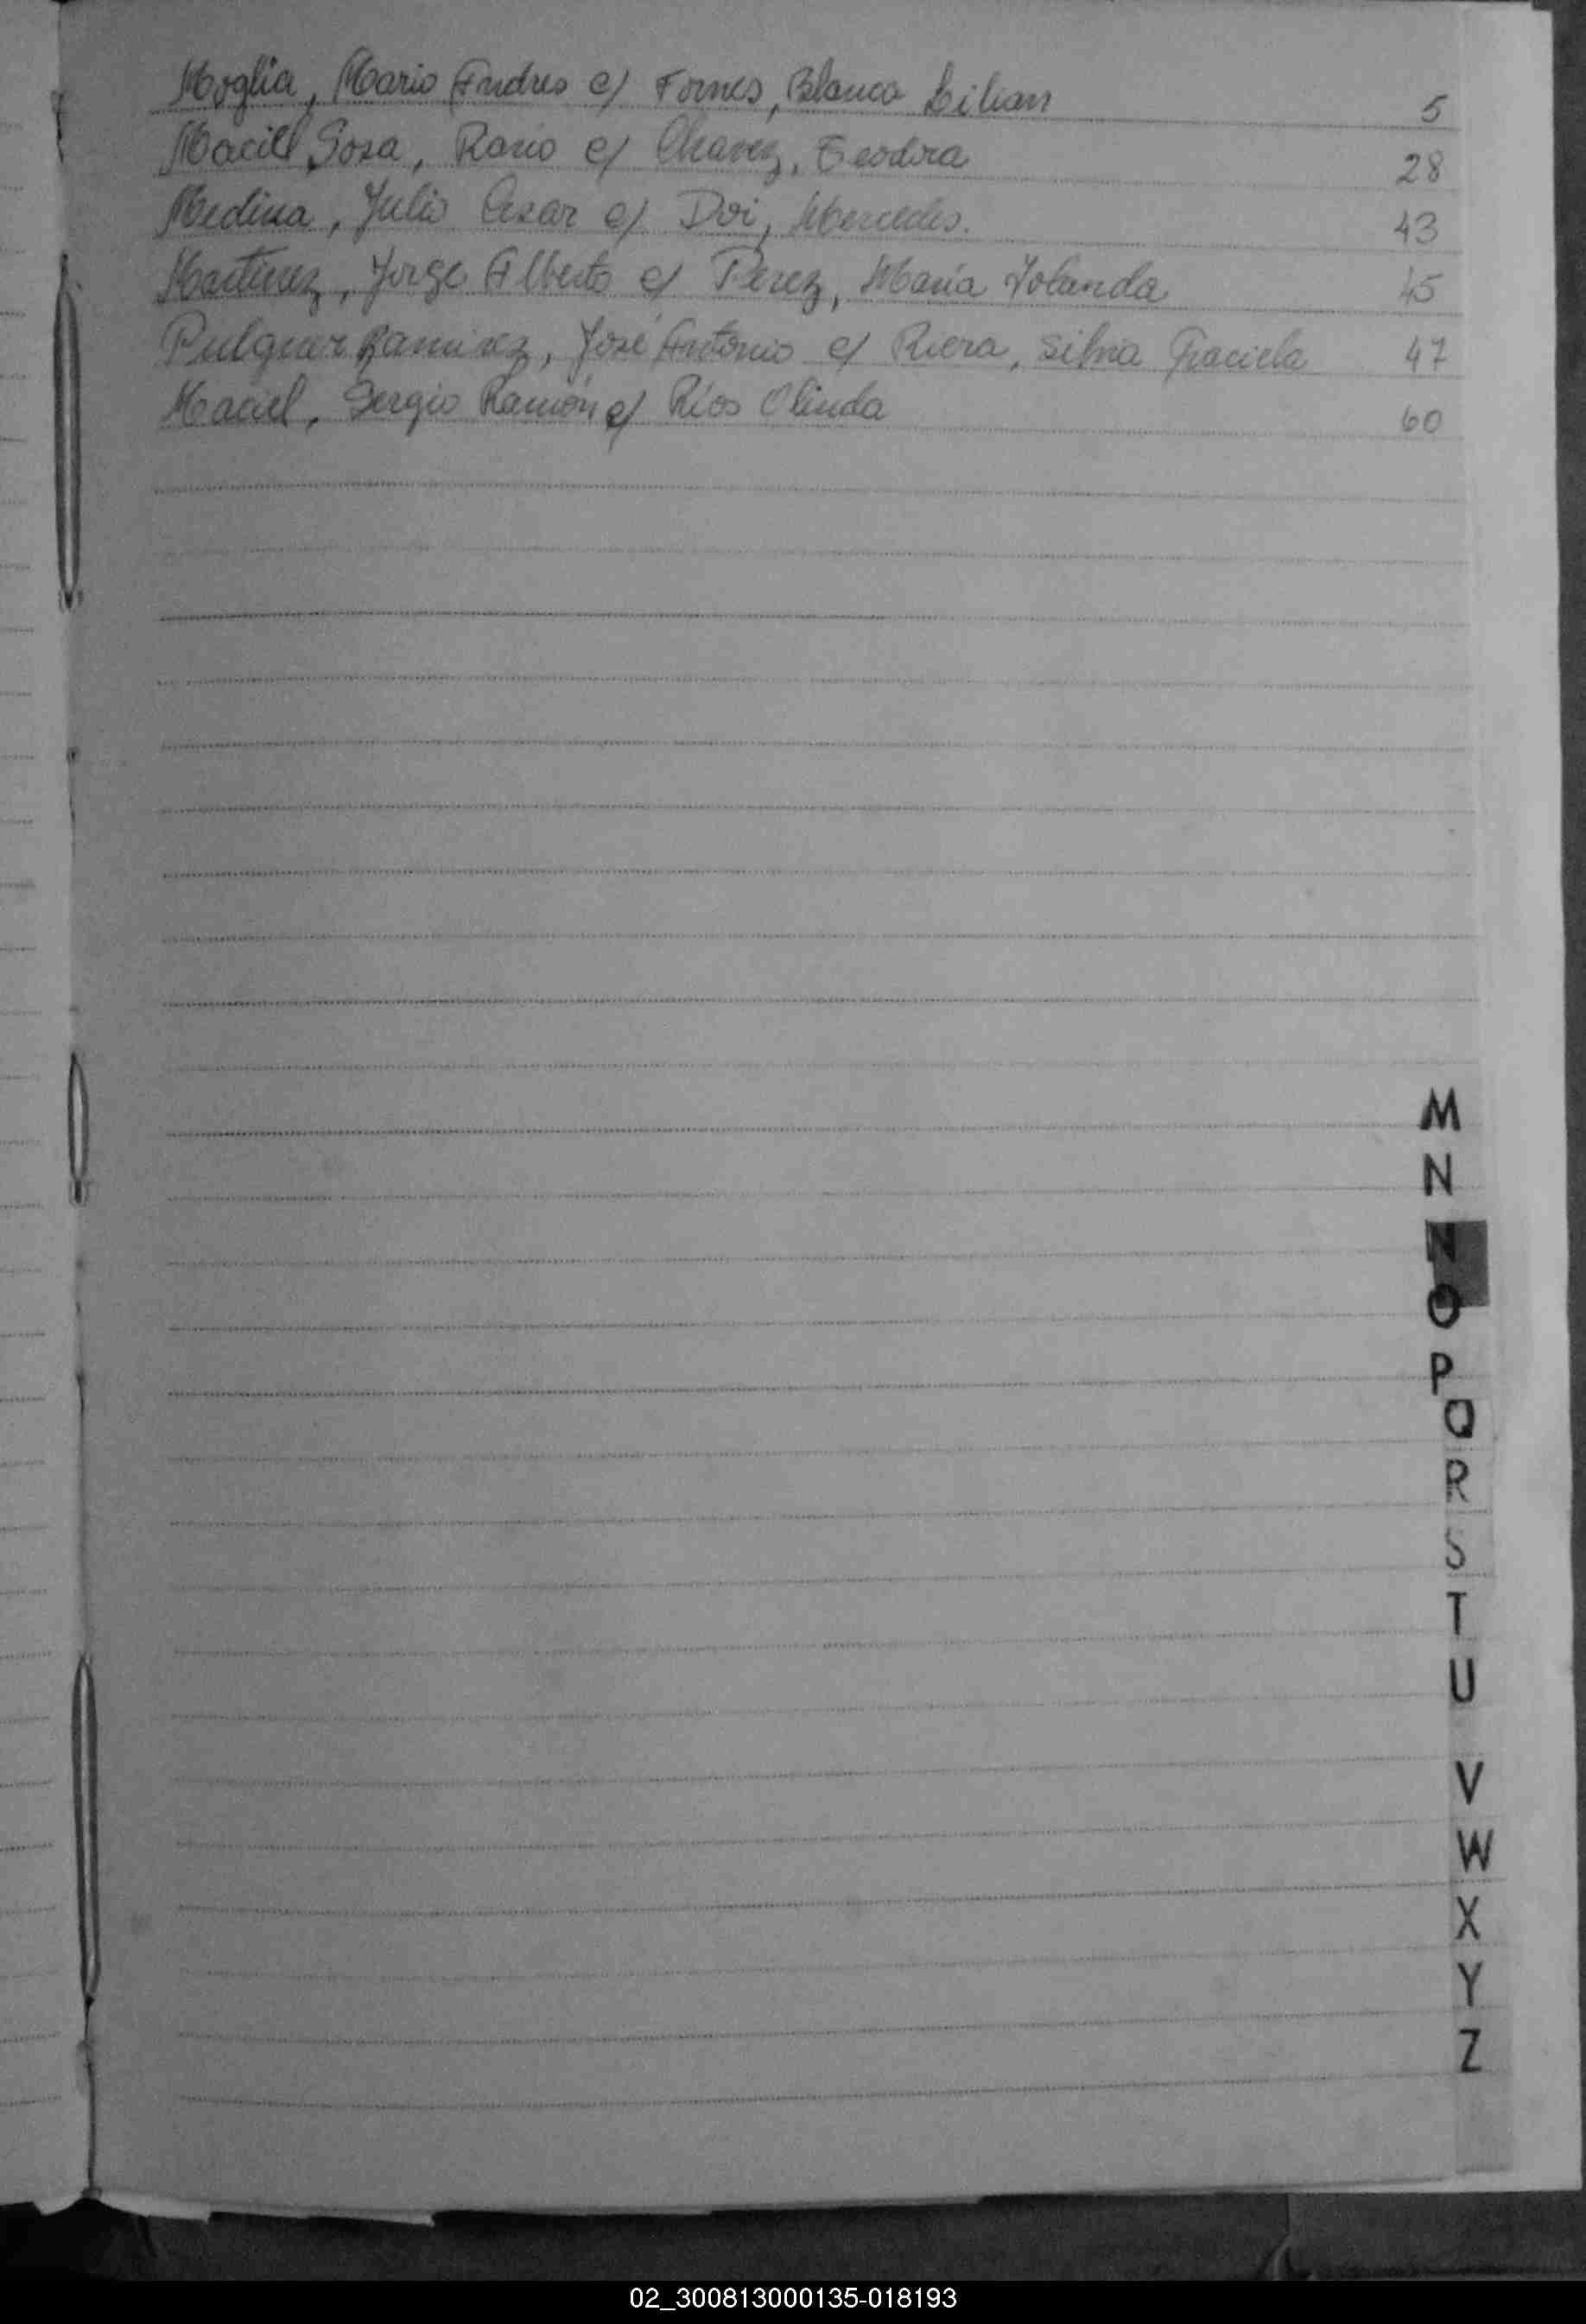 Moglia, Mario Andres c/ Fornes, Blanca Lilian 5
Maciel Sosa, Rario c/ Chavez, Teodora 28
Medina, Julio Cesar c/ Doi, Mercedes. 43
Martinez, Jorge Alberto c/ Perez, Maria Yolanda 45
Ramirez, José Antonio c/ Riera, Silvia Graciela 47
Maciel, Sergio Ramón c/ Ríos Olinda 60
M
N
N
O
P
Q
R
S
T
U
V
W
X
Y
Z
02_300813000135-018193